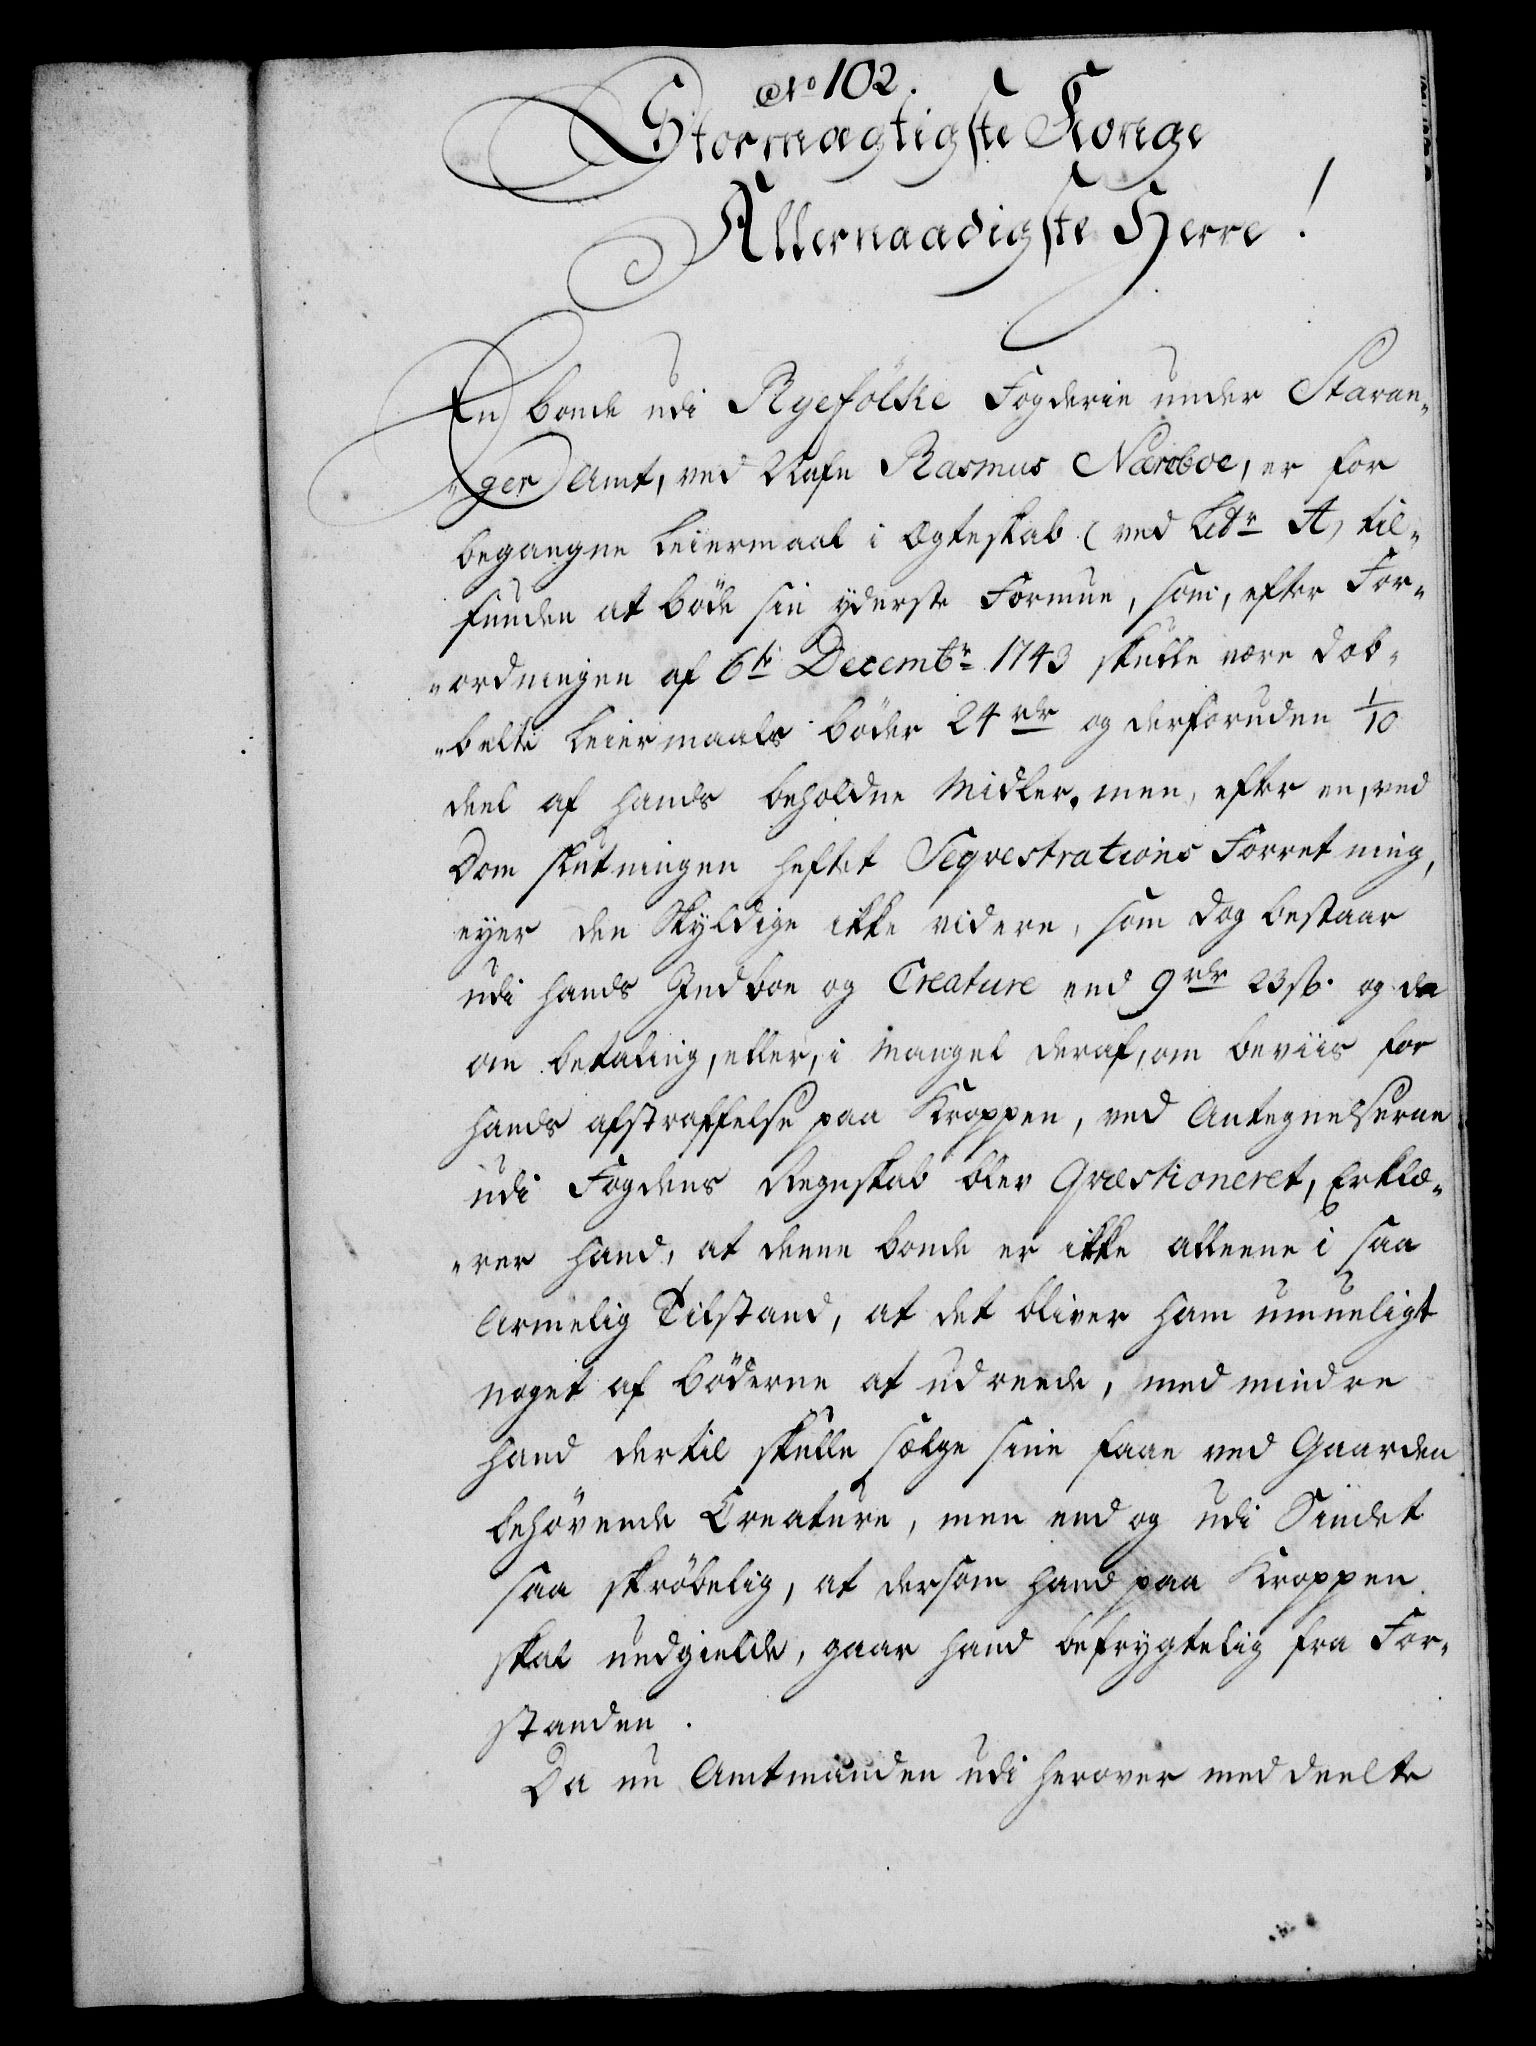 No 102.
Stormægtigste Konge
Allernaadigste Herre!
En bonde udi Ryefölke Fogderie under Stavan-
ger Amt, ved Nafn Rasmus Næroboe, er for
begangne Leiermaal i Ægteskab (ved Litr A) til-
funden at böde sin yderste Formue, som, efter For-
"ordningen af 6te Decembr 1743 skulle være dob-
"belte Leiermaals böder 24 rdr og derforuden 1/10
deel af hands beholdne Midler, men, efter en, ved
Dom slutningen heftet Seqvestrations Forretning,
eyer den Skyldige ikke videre, som dog bestaar
udi hands Indboe og Creature end 9 rdr 23 s. og da
om betaling, eller, i Mangel deraf, om beviis for
hands afstraffelse paa Kroppen, ved Antegnelserne
udi Fogdens Regnskab blev Qvæstioneret, Erklæ-
"rer hand, at denne bonde er ikke alleene i saa
Armelig Tilstand, at det bliver ham umueligt
noget af böderne at udreede, med mindre
hand dertil skulle sælge sine faae ved Gaarden
behövende Creature, men end og udi Sindet
saa skröbelig, at dersom hand paa Kroppen
skal undgielde, gaar hand befrygtelig fra For-
standen.
Da nu Amtmanden udi herover meddeelte